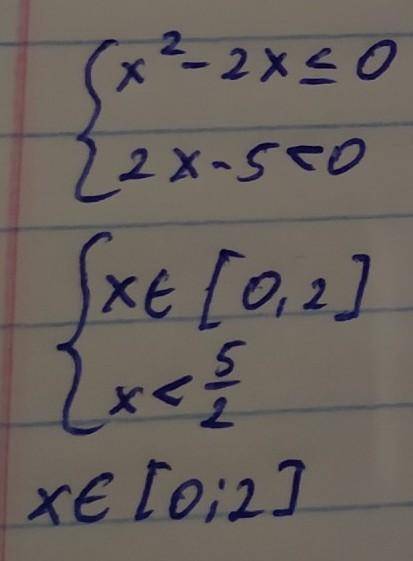 x² - 2x ≤ 0
2x - 5 < 0
x ∈ [0, 2]
x < 5/2
x ∈ [0; 2]